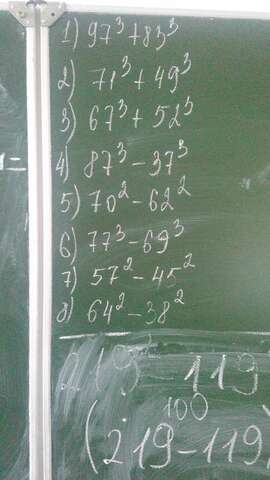 1) 97³ + 83³
2) 71³ + 49³
3) 67³ + 52³
4) 87³ − 37³
5) 70² − 62²
6) 77³ − 69³
7) 57² − 45²
8) 64² − 38²
− 119
100
(219 − 119)